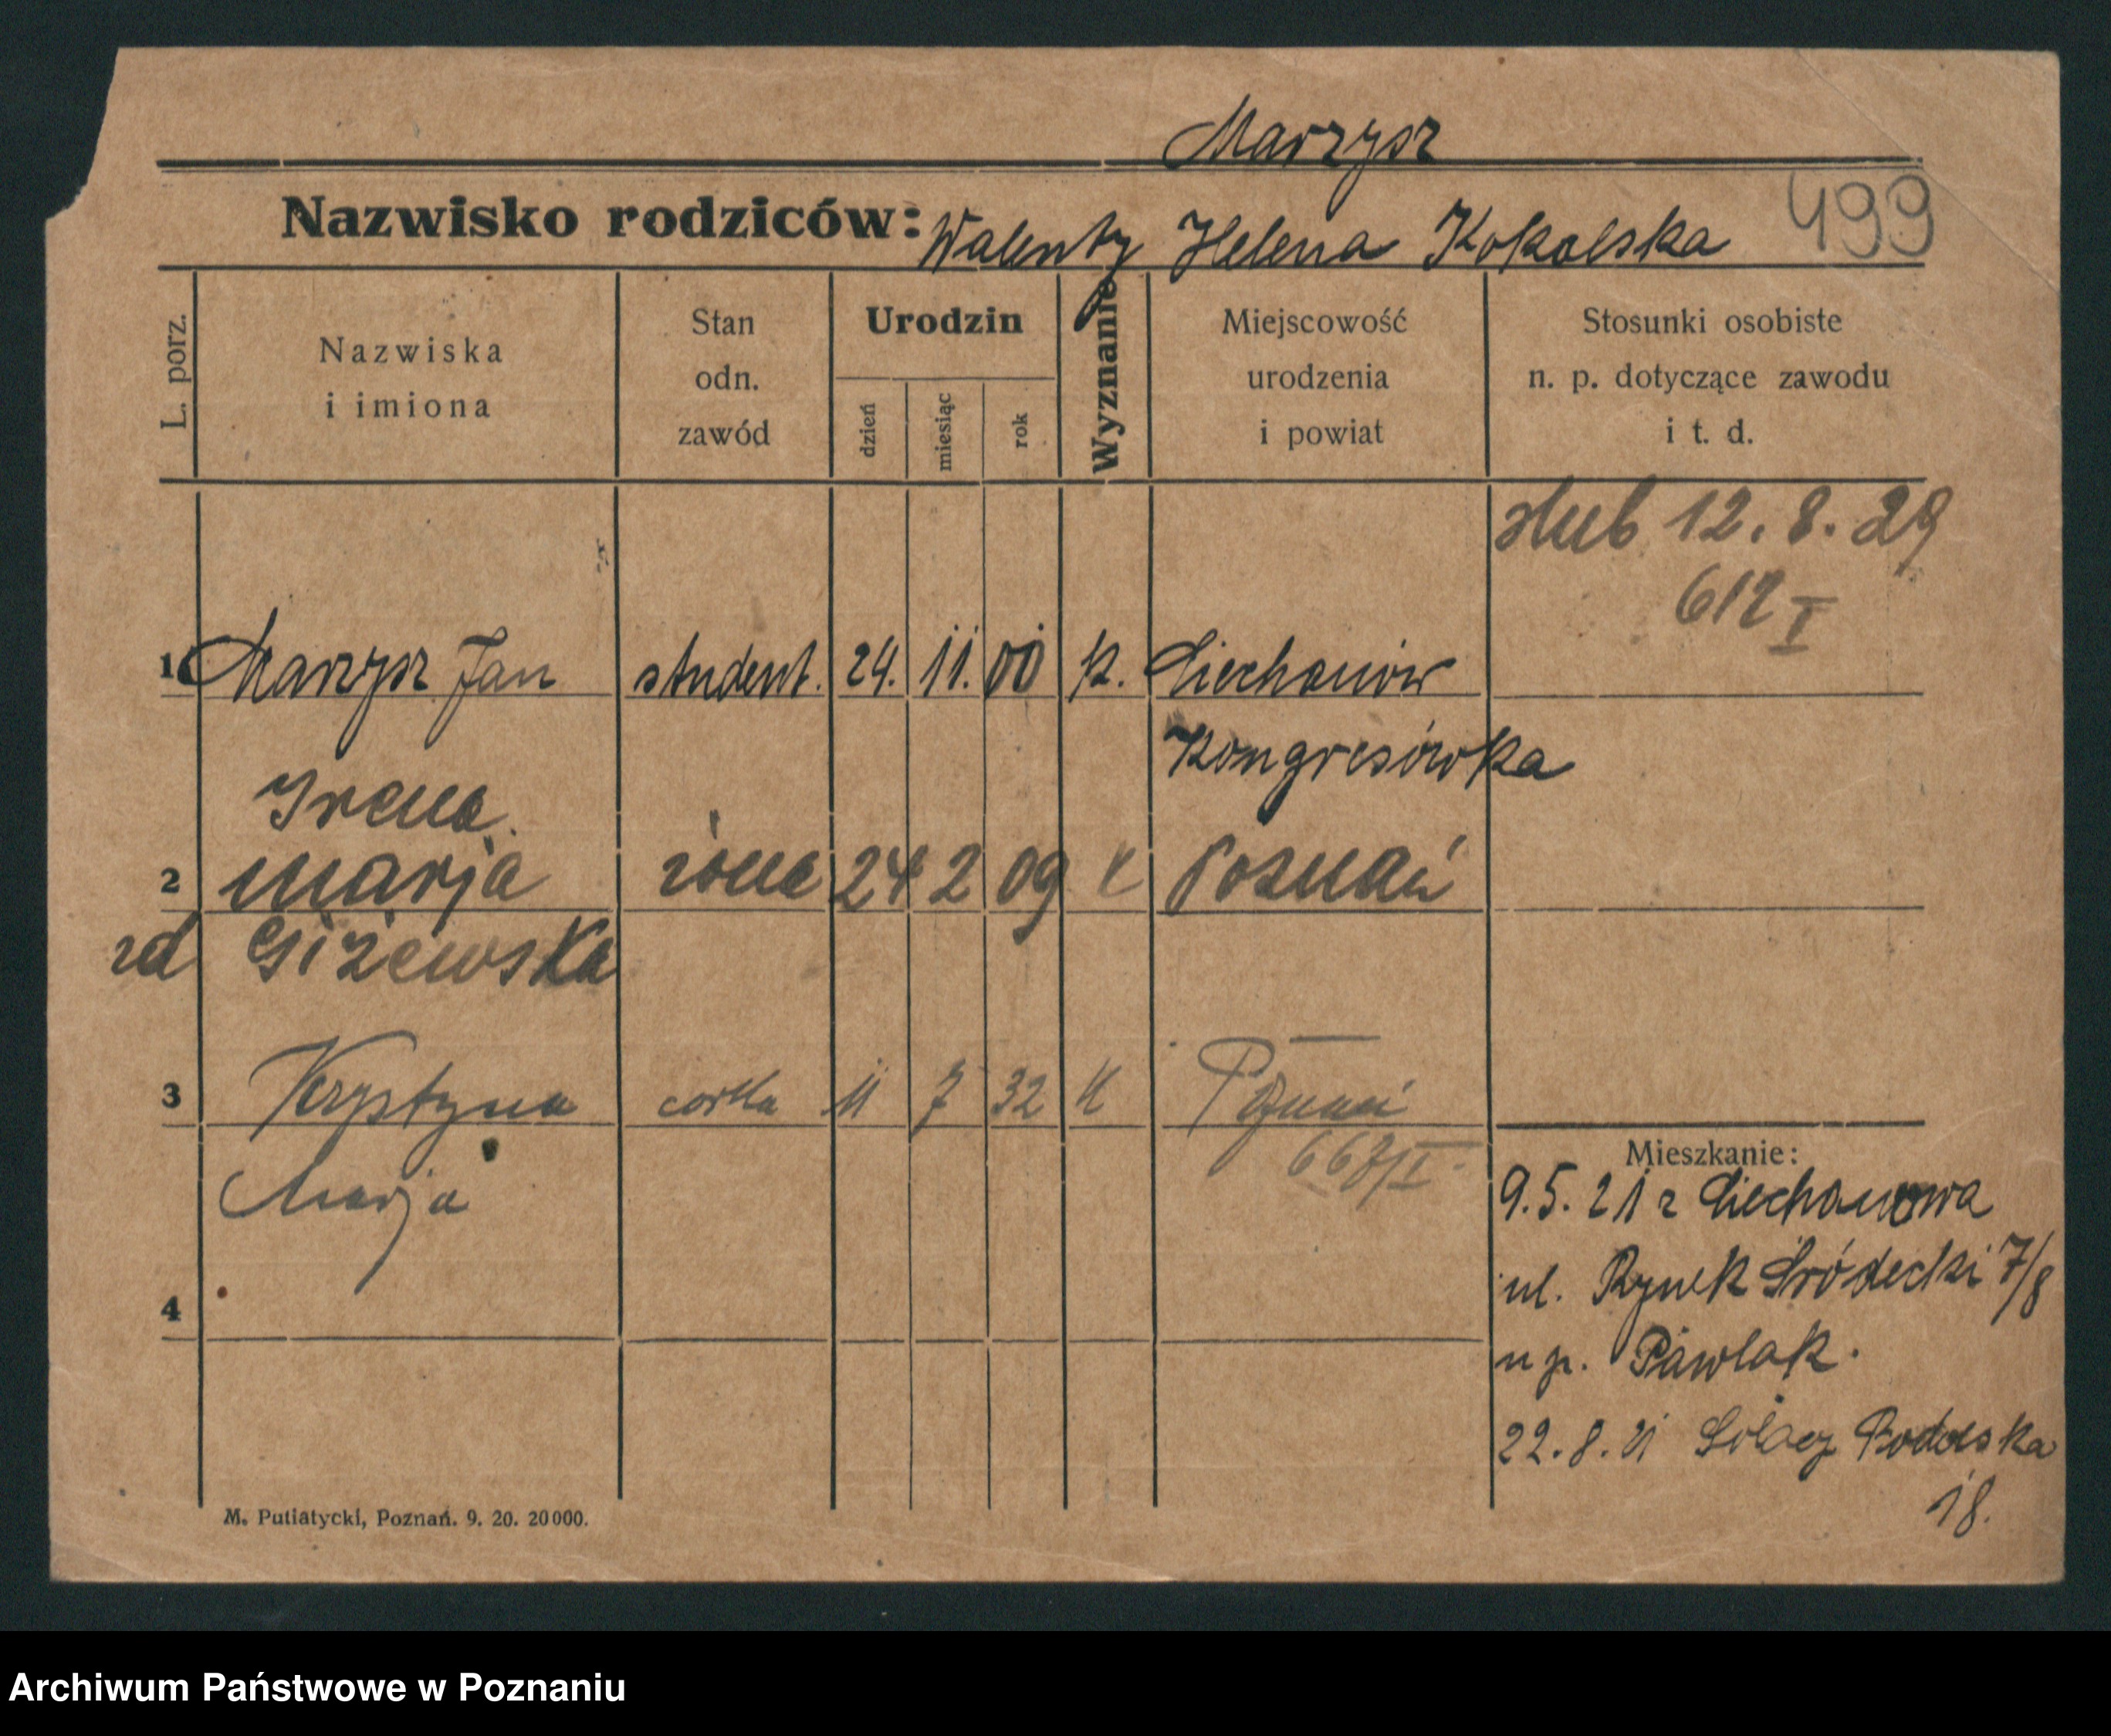 Marzysz
Nazwisko rodziców: Walenty Helena Kokolska 499
L. porz.
Nazwiska
i imiona
Stan
odn.
zawód
Urodzin
dzień
miesiąc
rok
Wyznanie
Miejscowość
urodzenia
i powiat
Stosunki osobiste
n. p. dotyczące zawodu
i t. d.
slub 12. 8. 29
612 I
1 Marzysz Jan student. 24. 11. 00 k. Ciechanów
Kongresówka
Irena
2 Marja żona 24 2 09 K Poznań
zd Giżewska
3 Krystyna corka 11 7 32 K Poznań
667/I
Marja
Mieszkanie:
9. 5. 21 z Ciechanowa
ul. Rynek Śródecki 7/8
u p. Pawlak.
22. 8. 21 Sołacz Podolska
18.
4
M. Putiatycki, Poznań. 9. 20. 20000.
Archiwum Państwowe w Poznaniu